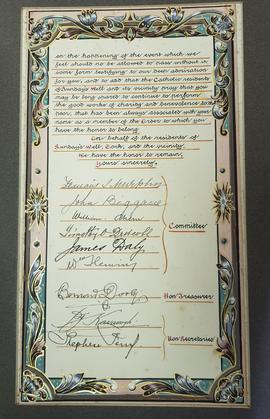 on the happening of the event which we
feel should no be allowed to pass without in
some form testifying to our deep admiration
for you, and to add that the Catholic residents
of Sunday's Well and its vicinity pray that you
may be long spared to continue to perform
the good works of charity and benevolence to the
poor, that has been always associated with your
name as a member of the Order to which you
have the honor to belong
On behalf of the residents of
Sunday's Well, Cork, and the vicinity.
We have the honor to remain,
Yours sincerely.
Francis J. Murphy
John
William
Timothy O'Driscoll
Committee
James Daly
Wm Fleming
Edmond
Hon Treasurer
Hon Secretaries
Stephen